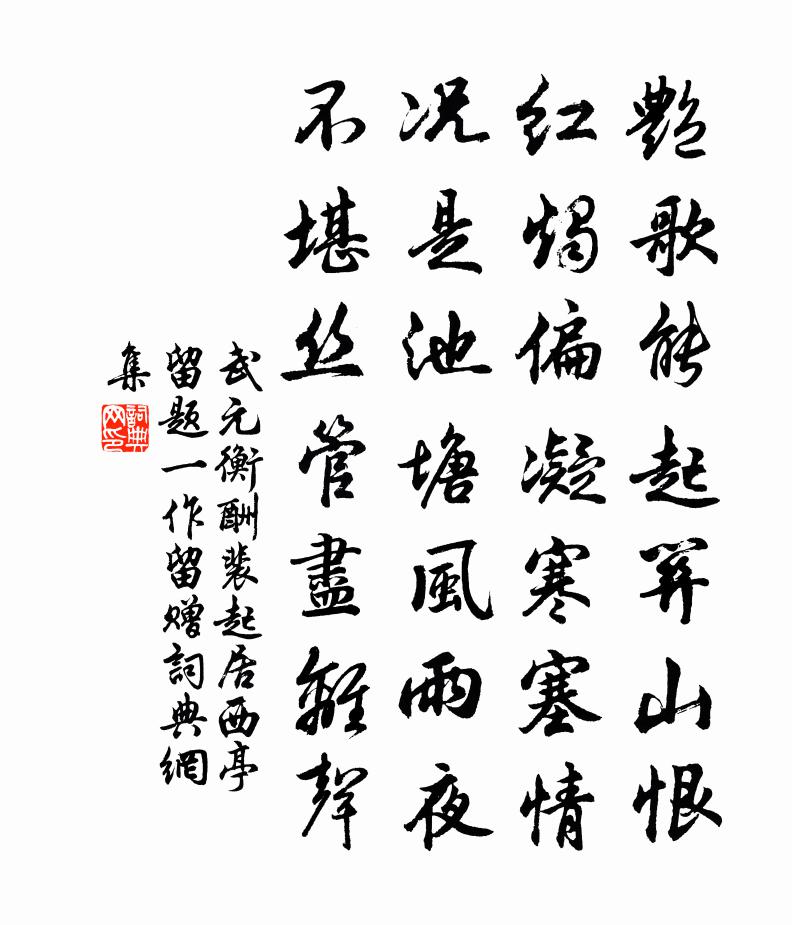 艷歌能起關山恨
紅燭偏凝寒塞情
况是池塘風雨夜
不堪丝管盡離聲
武元衡酬裴起居西亭
留题一作留赠詞典網
集
詞典
网印